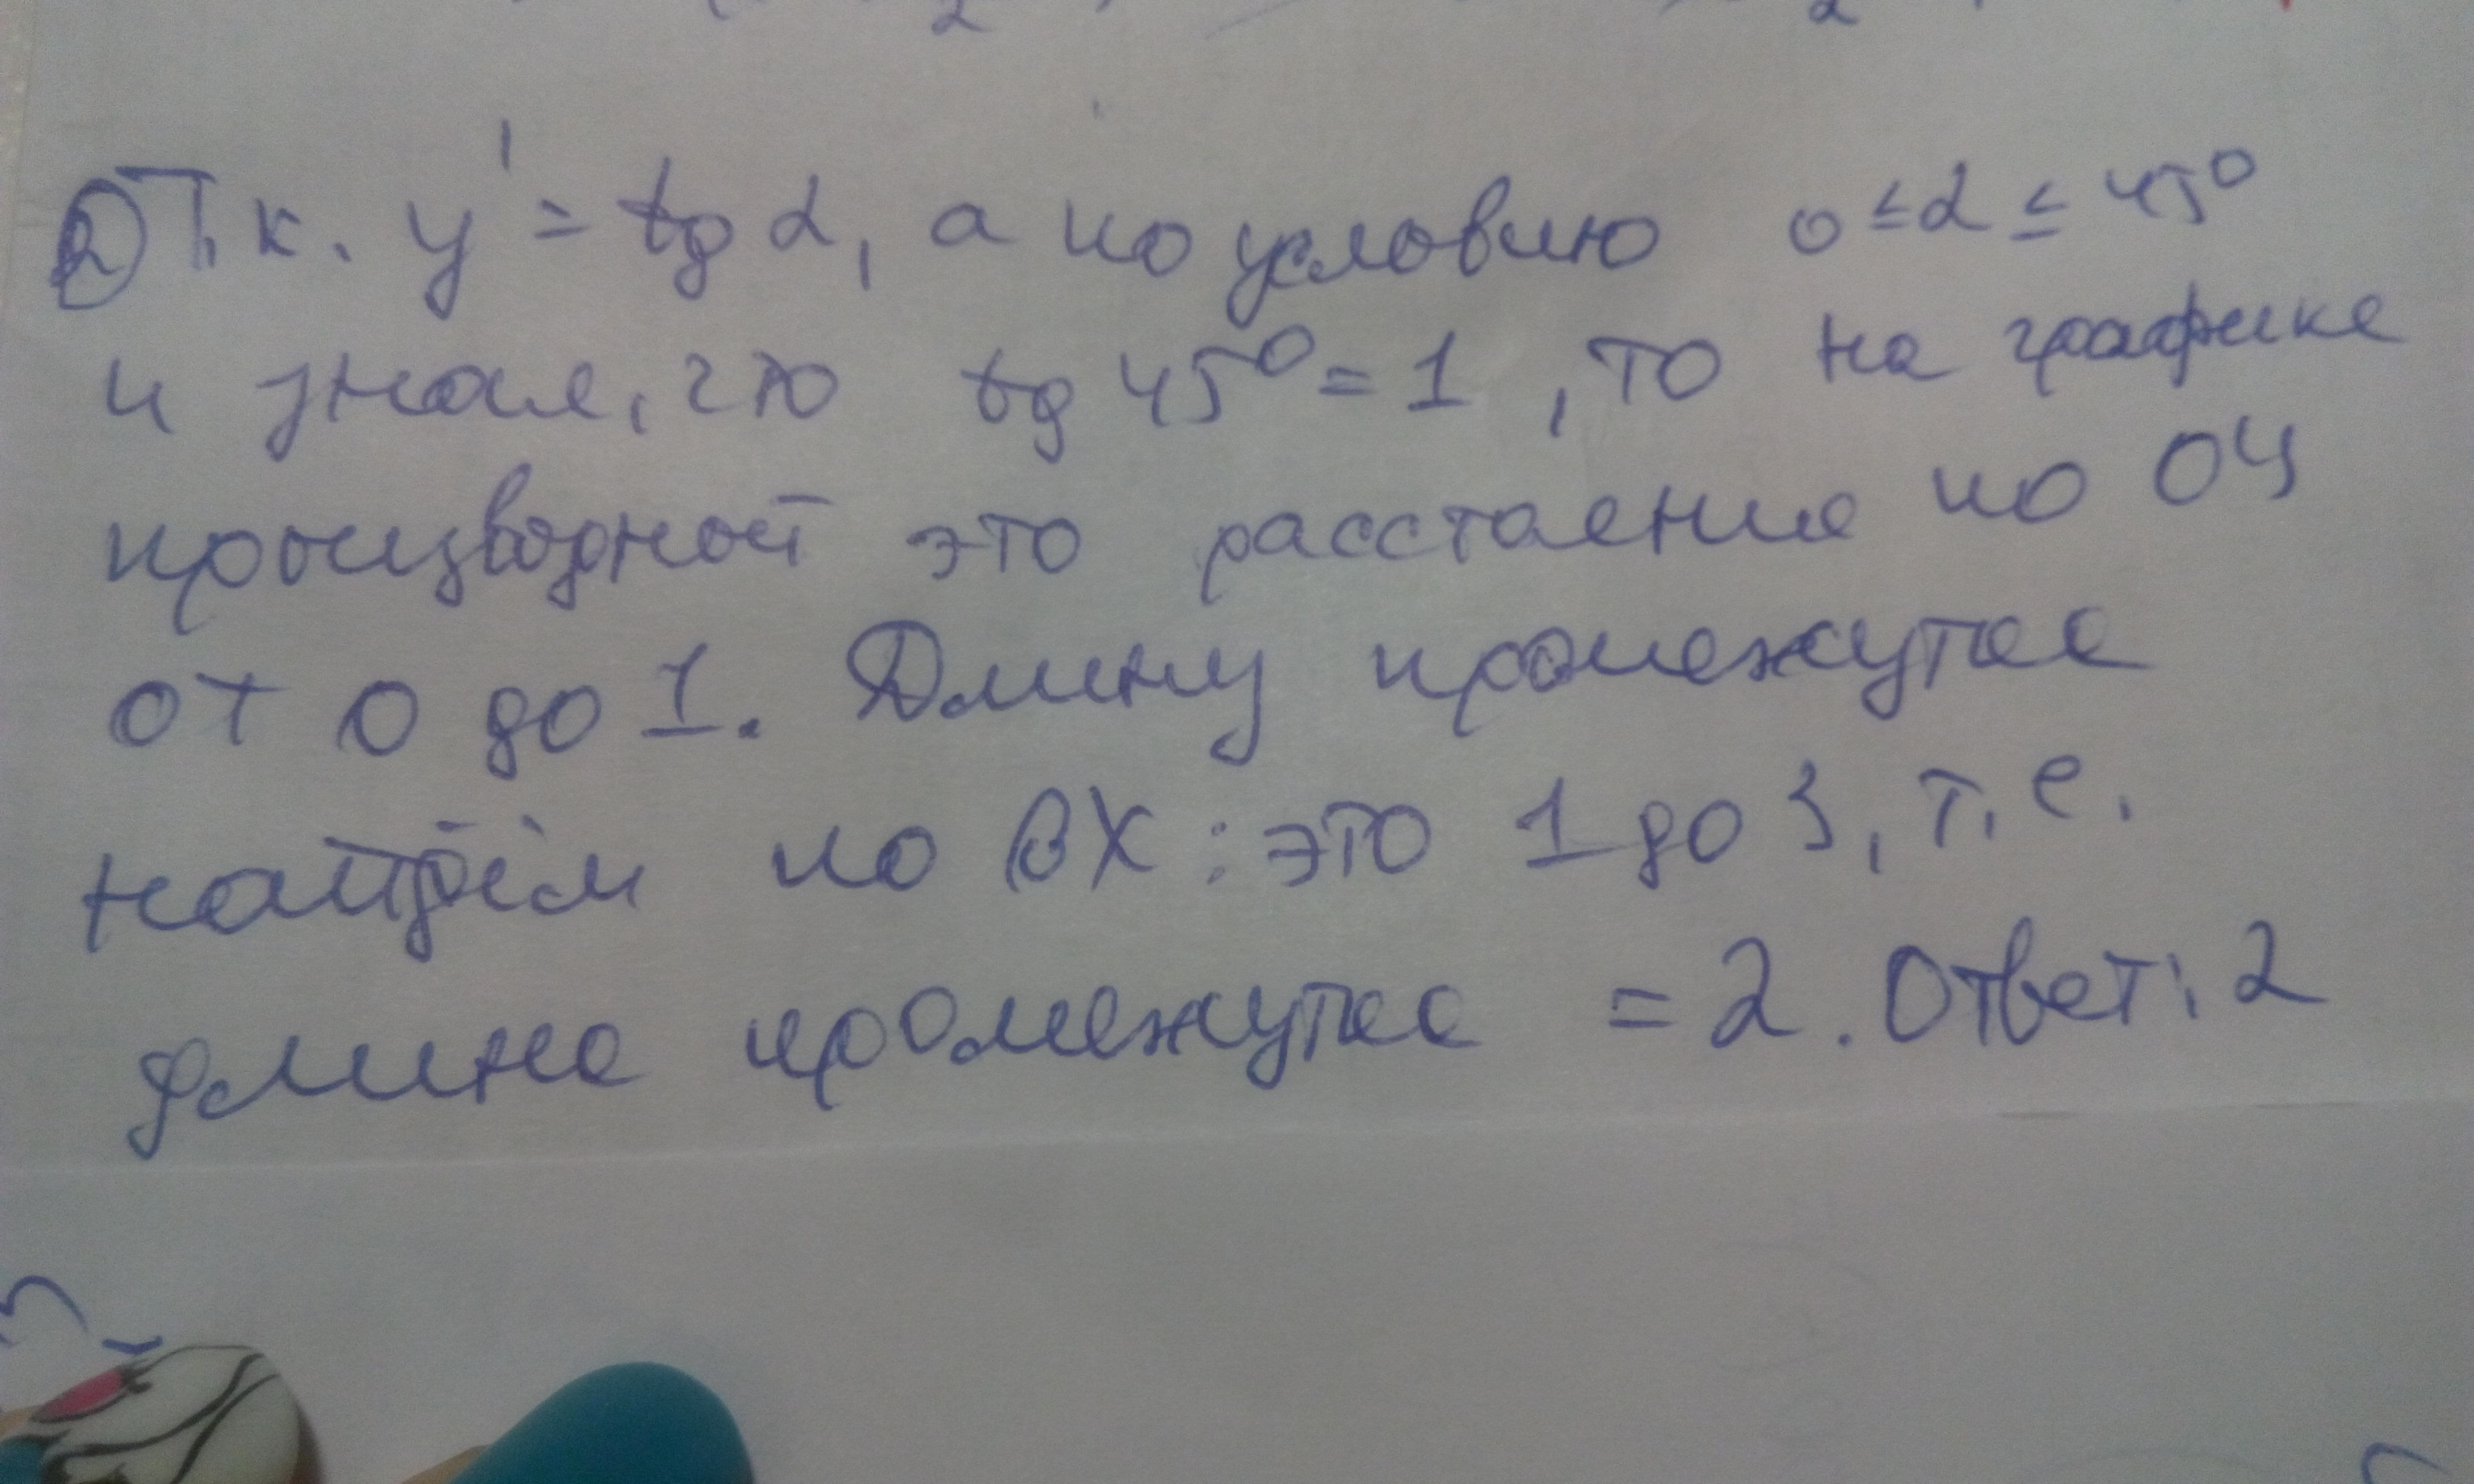 2 2
② Т.к. y' = tg α, а по условию 0 ≤ α ≤ 45⁰
и зная, что tg 45⁰ = 1, то на графике
производной это расстояние по ОУ
от 0 до 1. Длину промежутка
найдём по ОХ: это 1 до 3, т.е.
длина промежутка = 2. Ответ: 2